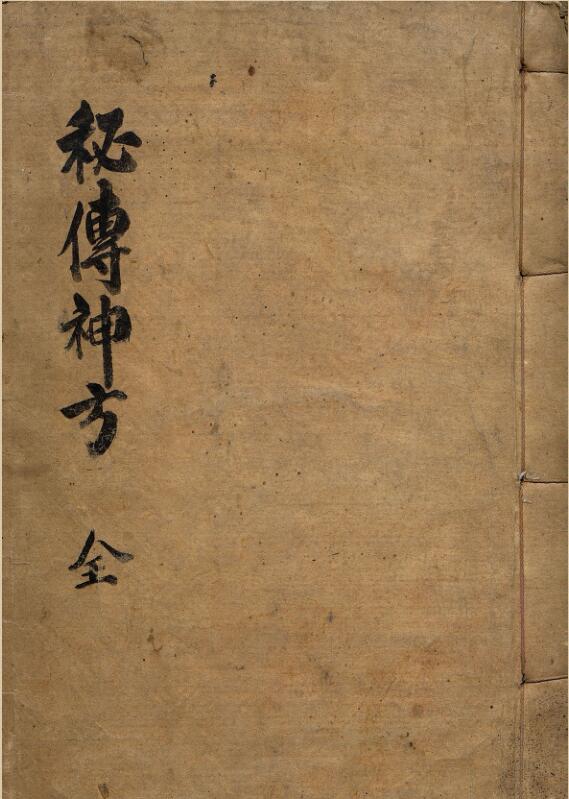 秘傳神方 全